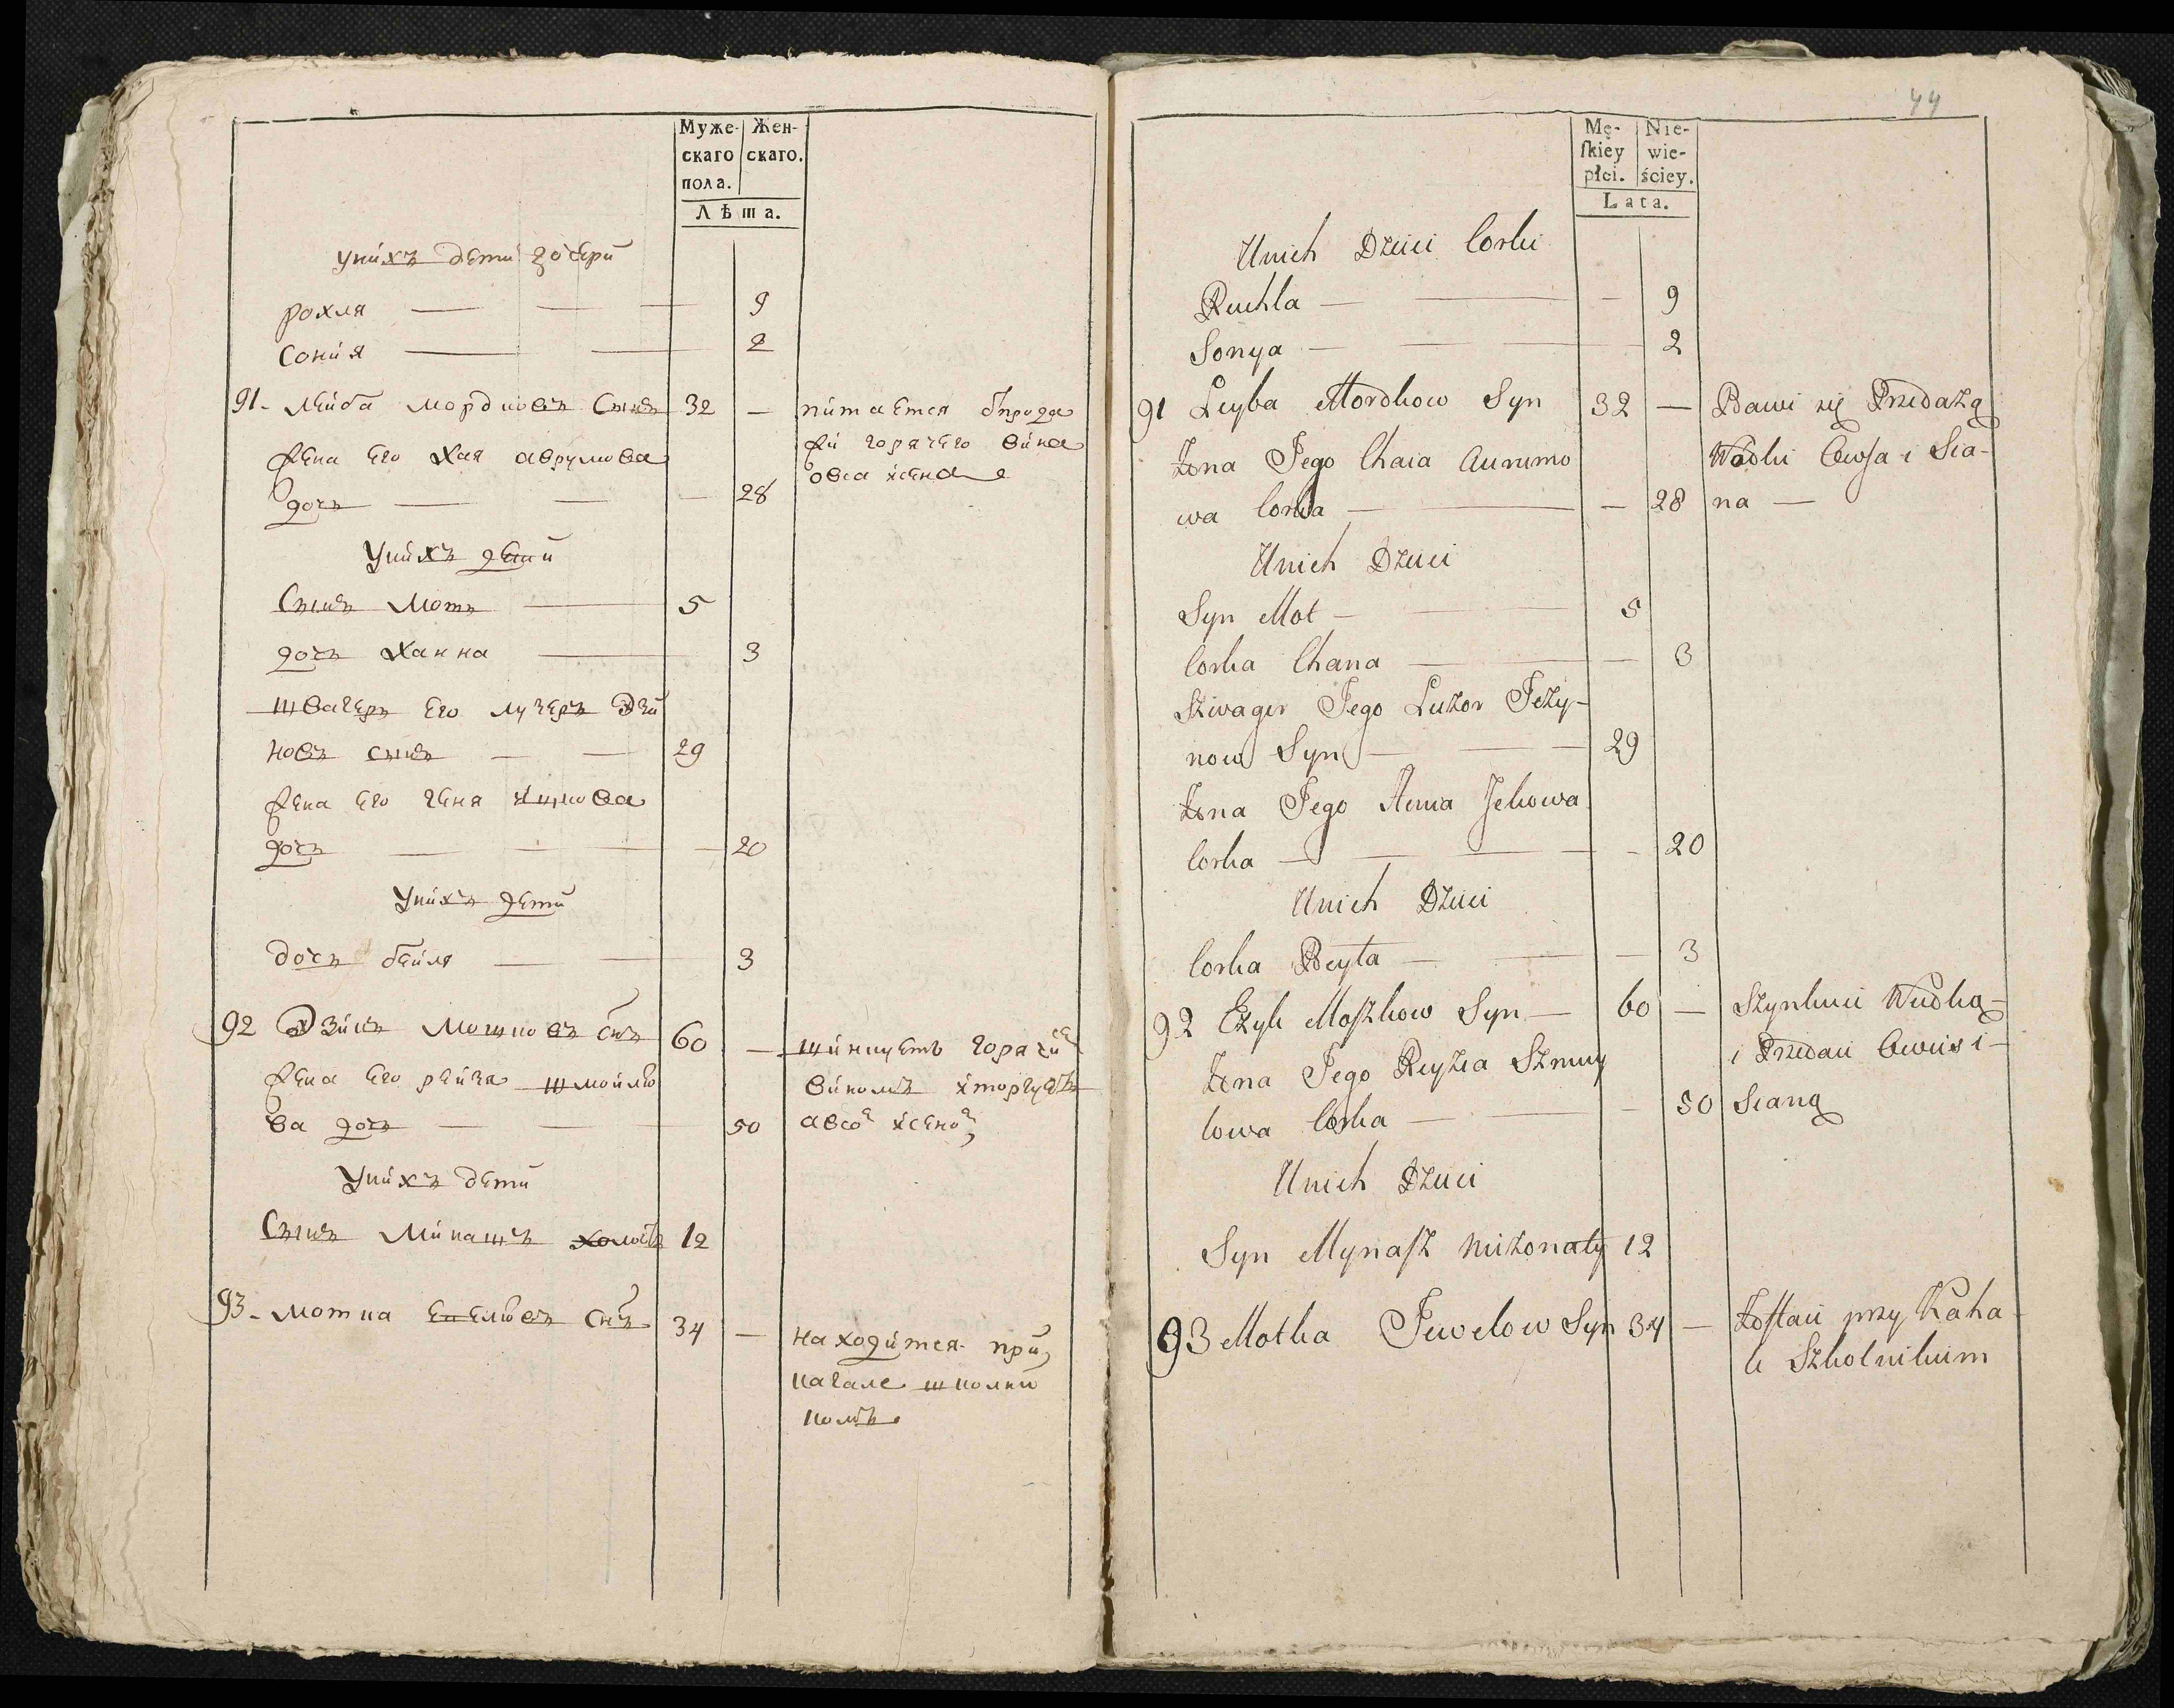 Муже- Жен-
скаго скаго.
пола.
Лѣта.
унихъ дети дочери
рохля — — — 9
сония — — 2
91- лейба мордковъ Сынъ 32 — питается ѿпрода
жи горячего вина
овса исена
жена его хая аврумова
дочь — — — 28
Унихъ дети
Сынъ мотъ — 5
дочь ханна — 3
швагеръ его лузеръ Эзи
новъ сынъ — — 29
жена его геня
дочь — — — — 20
Унихъ дети
дочь бейля — — 3
92 Эзикъ мошковъ сынъ 60 — шинкуетъ горячи
виномъ иторгуетъ
авсо исено
жена его рейза шмойло
ва дочь — — 50
Унихъ дети
Сынъ минашъ холостъ 12
93- мотка евелювъ сынъ 34 — находится при
кагале школни
комъ
44
Mę- Nie-
ſkiey wie-
płci. ściey.
Lata.
Unich Dzieci Corki
Ruchla — — — 9
Sonya — — — 2
91 Leyba Mordkow Syn 32 — Bawi się Przedażą
Wodki Owsa i Sia-
na —
Żona Jego Chaia Aurumo
wa Corka — — — 28
Unich Dzieci
Syn Mot — — 5
Corka Chana — — 3
Szwagier Jego Luzor Jezy-
now Syn — — — 29
Żona Jego Henia Jckowa
Corka — — — — 20
Unich Dzieci
Corka Beyła — — — 3
92 Ezyk Moszkow Syn — 60 — Szynkuie Wudką
i Przedaie Owies i
Siano
Żona Jego Reyzia Szmuy
lowa Corka — — — 50
Unich Dzieci
Syn Mynasz nieżonaty 12
93 Motka Jewelow Syn 34 — Zostaie przy Kaha-
le Szkolnikiem